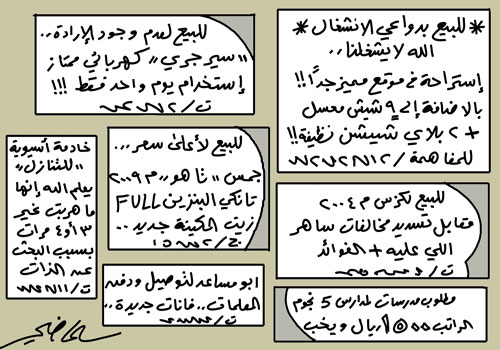 * للبيع بدواعي الانشغال *
الله لا يشغلنا..
إستراحة في موقع مميز جداً!!
بالاضافة إلى ٩ شيش معسل
+ ٢ بلاي ستيشن نظيفة!!
للمفاهمة /
للبيع لعدم وجود الإرادة..
"سير جري" كهربائي ممتاز
إستخدام يوم واحد فقط !!!
ت/
للبيع لأعلى سعر...
جمس "تاهو" م ٢٠٠٩
تانكي البنزين FULL
زيت المكينة جديد..
ج/
خادمة أسيوية
"للتنازل"
يعلم الله إنها
ما هربت غير
٣ أو ٤ مرات
بسبب البحث
عن الذات
ت/
للبيع لكزس م ٢٠٠٤
مقابل تسديد مخالفات ساهر
اللي عليه + الفوائد
ت/
ابو مساعد لتوصيل ودف
المعلمات.. فانات جديدة..
ت/
مطلوب مدرسات لمدارس 5 نجوم
الراتب ريال ويخب